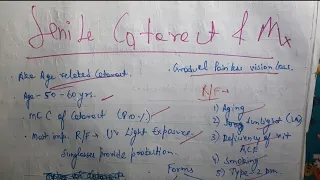 Senile Cataract & Mx
Aka Age related Cataract.
• Gradual Painless vision loss.
Age - 50-60 yrs.
• MCC of Cataract (90%)
• Most imp. R/F → UV light Exposure.
Sunglasses provide protection.
R/F →
1) Aging
2) Sunlight
3) Deficiency of vit
ACE
4) Smoking
5) Type-2 DM.
Forms